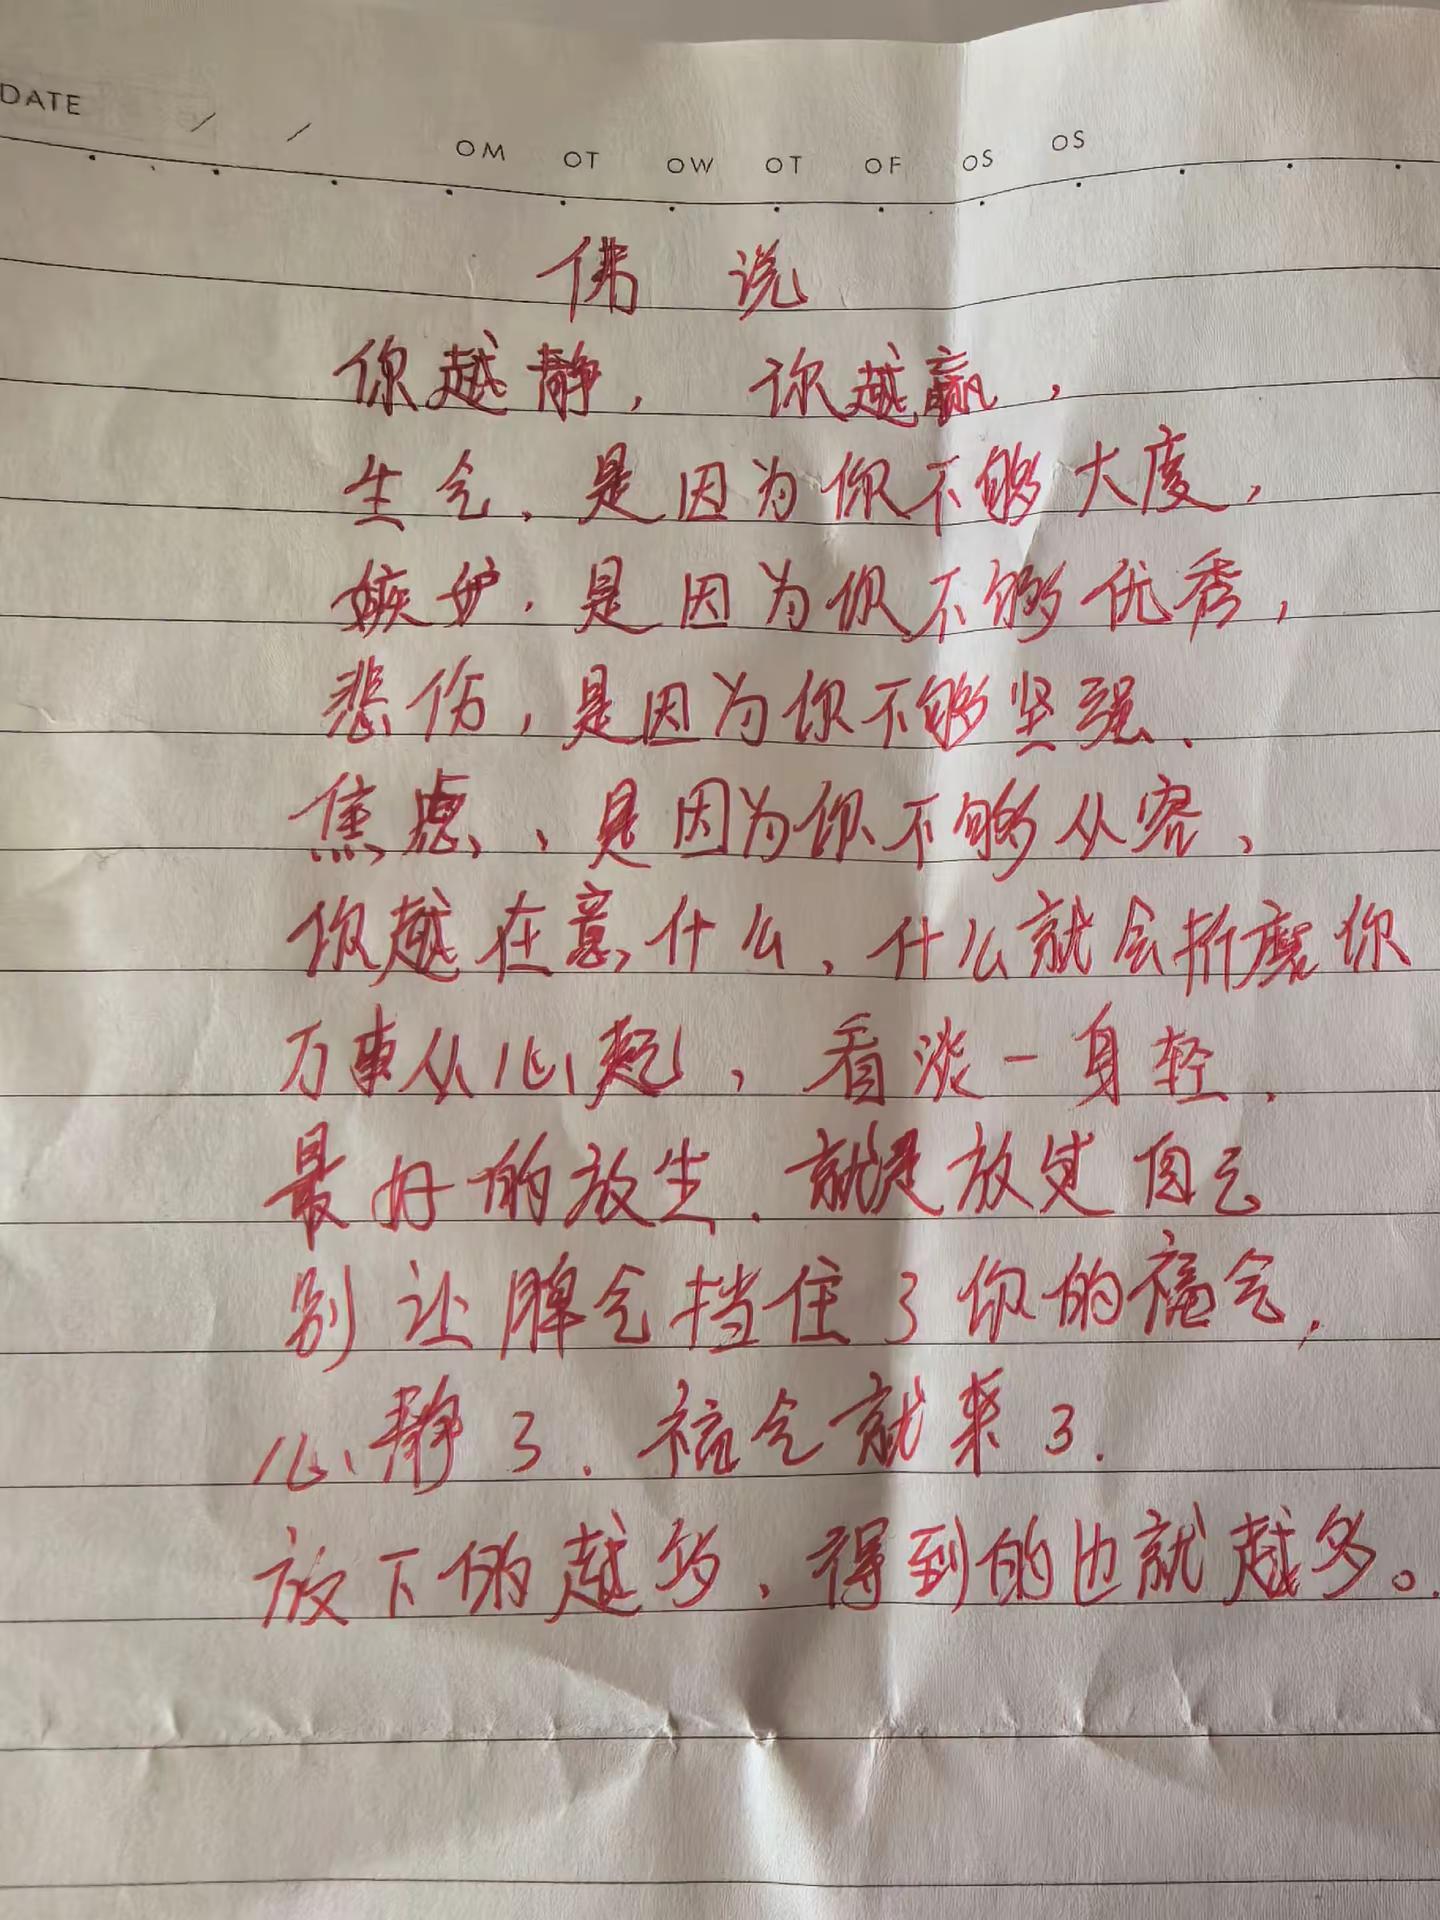 DATE / /
OM OT OW OT OF OS OS
佛 说
你越静， 你越赢，
生气，是因为你不够大度，
嫉妒，是因为你不够优秀，
悲伤，是因为你不够坚强、
焦虑、是因为你不够从容、
你越在意什么、什么就会折磨你
万事从心起，看淡一身轻.
最好的放生.就是放过自己
别让脾气挡住了你的福气，
心静了.福气就来了.
放下的越多、得到的也就越多。.